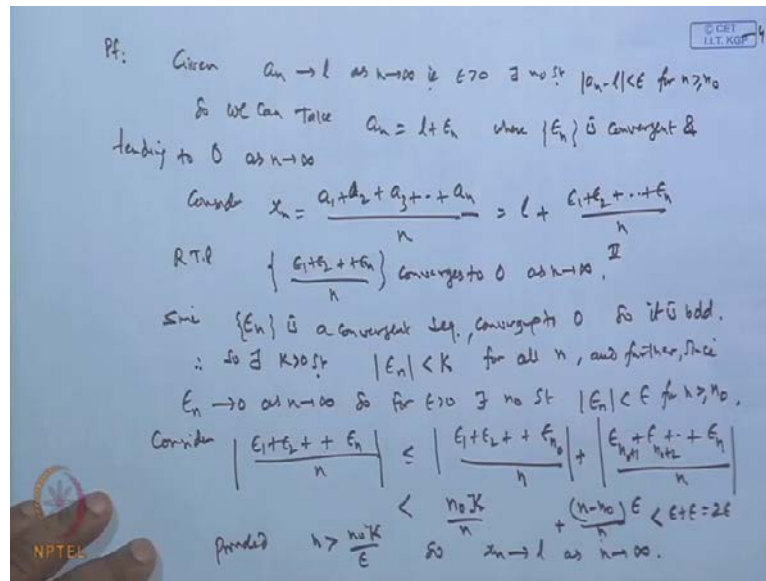 © CET
I.I.T. KGP
4
Pf: Given an → l as n→∞ ie ε>0 ∃ n0 st |an - l|<ε for n≥n0
So we can take an = l+εn where {εn} is convergent &
tending to 0 as n→∞
Consider xn = (a1+a2+a3+..+an)/n = l + (ε1+ε2+..+εn)/n
R.T.P {(ε1+ε2++εn)/n} converges to 0 as n→∞. II
Since {εn} is a convergent seq., convergent to 0 So it is bdd.
∴ so ∃ K>0 st |εn| < K for all n, and further, since
εn → 0 as n→∞ So for ε>0 ∃ n0 St |εn| < ε for n≥n0.
Consider |(ε1+ε2++εn)/n| ≤ |(ε1+ε2++εn0)/n| + |(εn0+1+εn0+2+..+εn)/n|
< n0K/n + (n-n0)ε/n < ε+ε=2ε
provided n > n0K/ε So xn→l as n→∞.
NPTEL